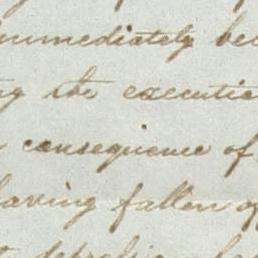 immediately be
ng the executio
consequence of
having fallen o